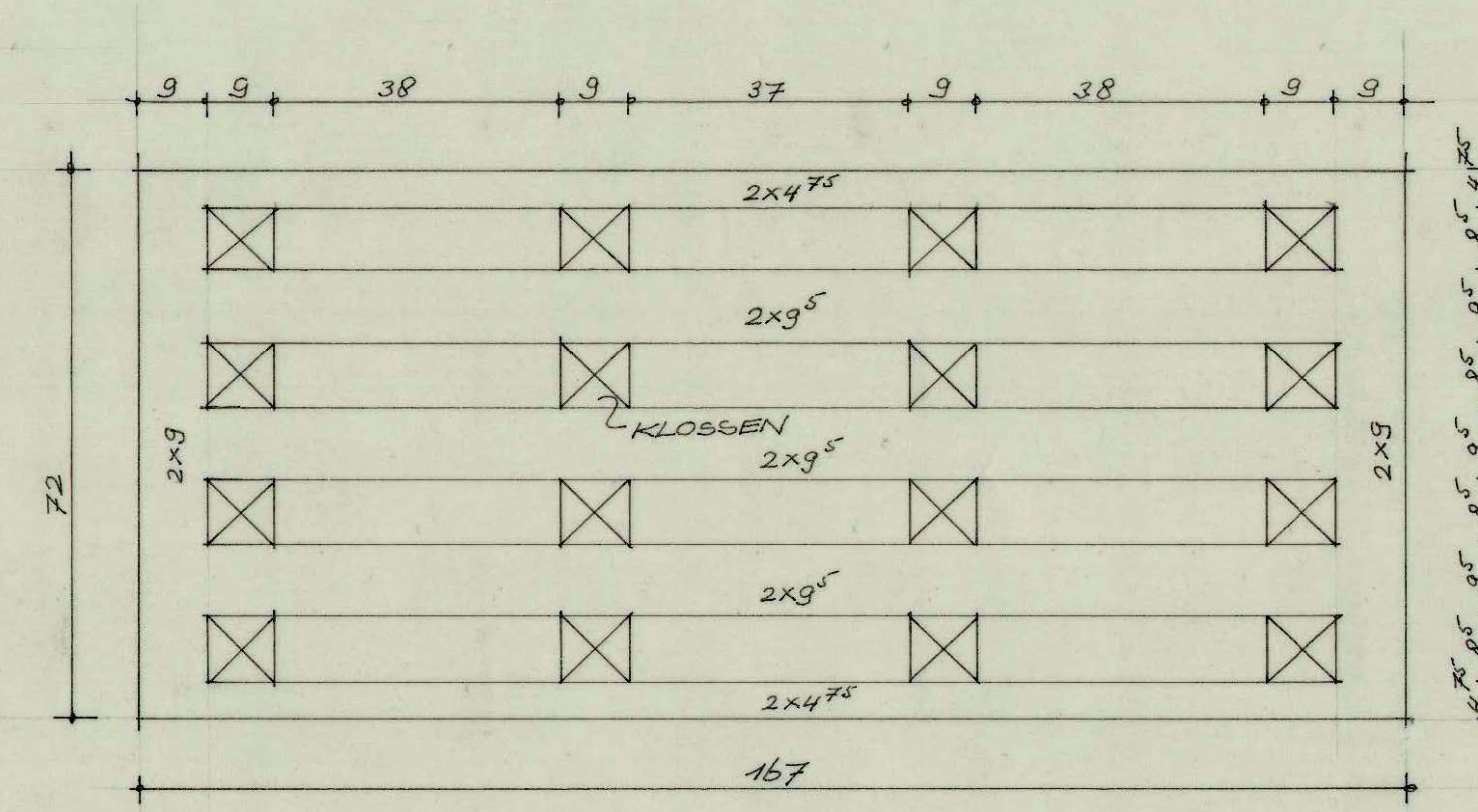 9 9 38 9 37 9 38 9 9
2×4⁷⁵
2×9⁵
KLOSSEN
2×9⁵
2×9⁵
2×4⁷⁵
2×9
2×9
72
167
4⁷⁵ 8⁵ 9⁵ 8⁵ 9⁵ 8⁵ 9⁵ 8⁵ 4⁷⁵